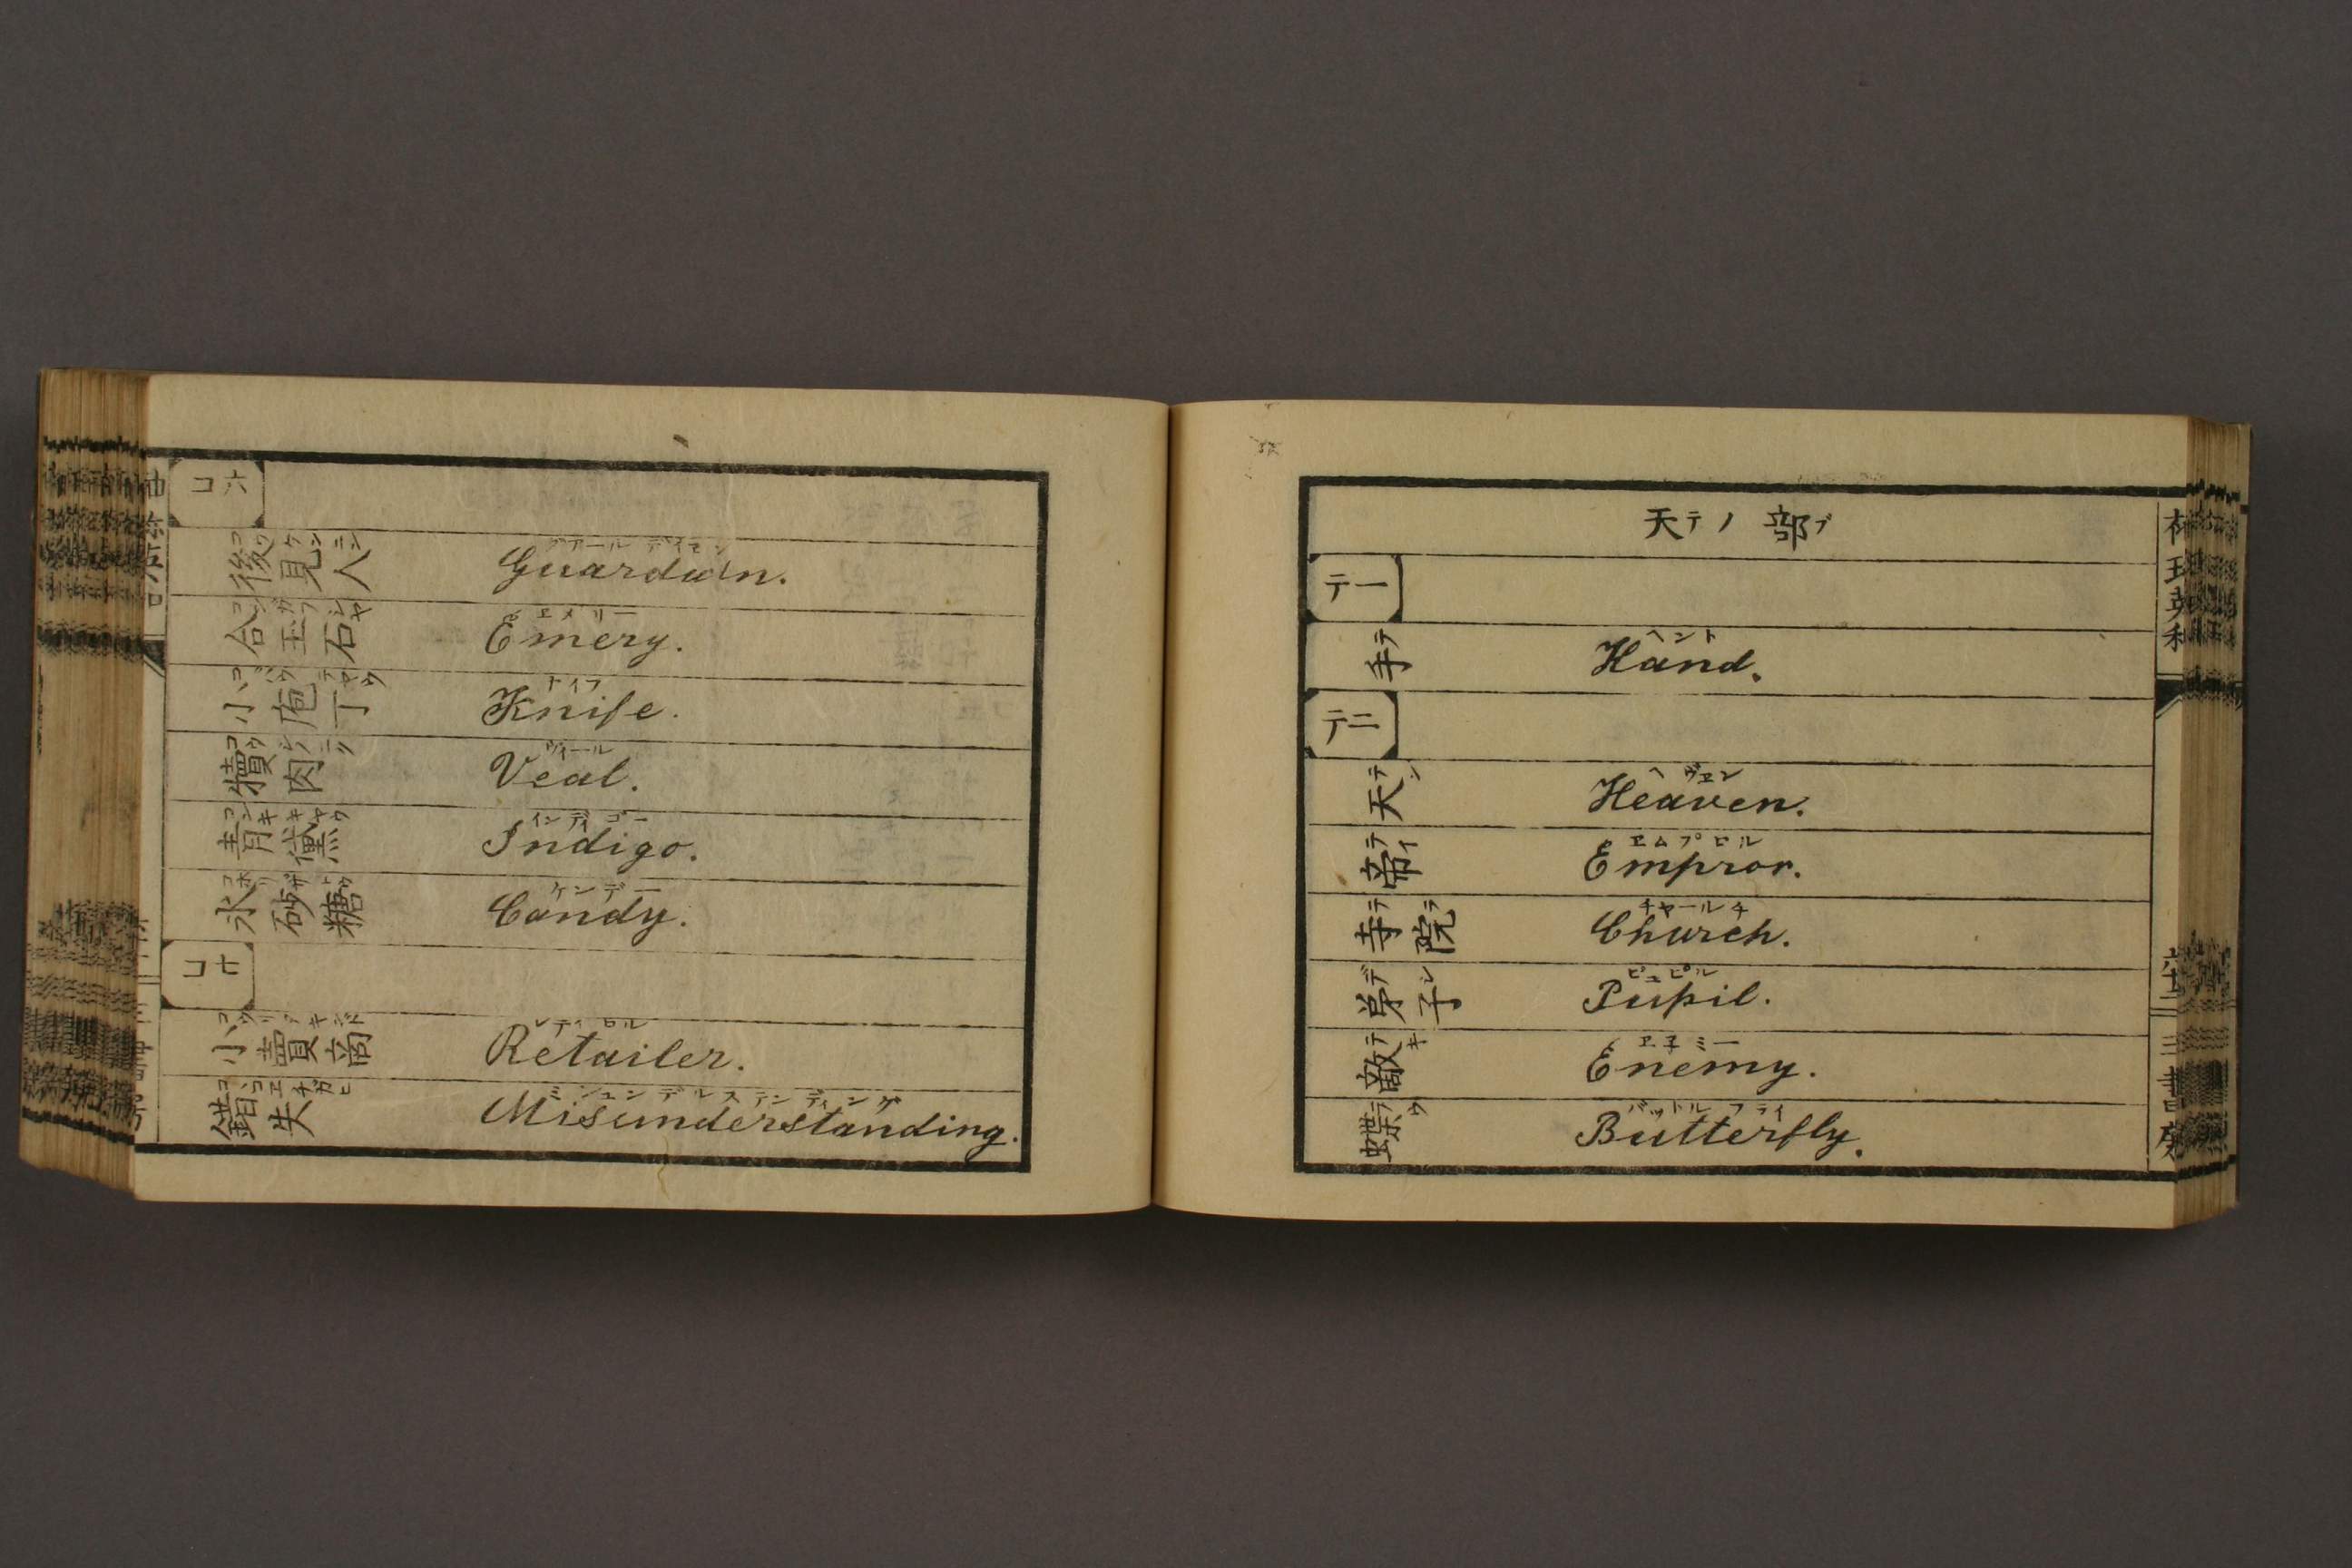 コ六
後見人 コウケンニン
グアールデイエン
Guardian.
合玉石
エメリー
Emery.
小庖丁
ナイフ
Knife.
犢肉 コウシノニク
ヴィール
Veal.
青黛
インディゴー
Indigo.
氷砂糖
ケンデー
Candy.
コ七
小賣商
レティロル
Retailer.
錯失 コヽロエチガヒ
ミシュンデルステンディング
Misunderstanding.
天テノ部ブ
テ一
手テ
ヘント
Hand.
テ二
天テン
ヘヴエン
Heaven.
帝テイ
エムプロル
Empror.
寺院テラ
チヤールチ
Church.
弟子デシ
ピュピル
Pupil.
敵テキ
エネミー
Enemy.
蝶テフ
バットルフライ
Butterfly.